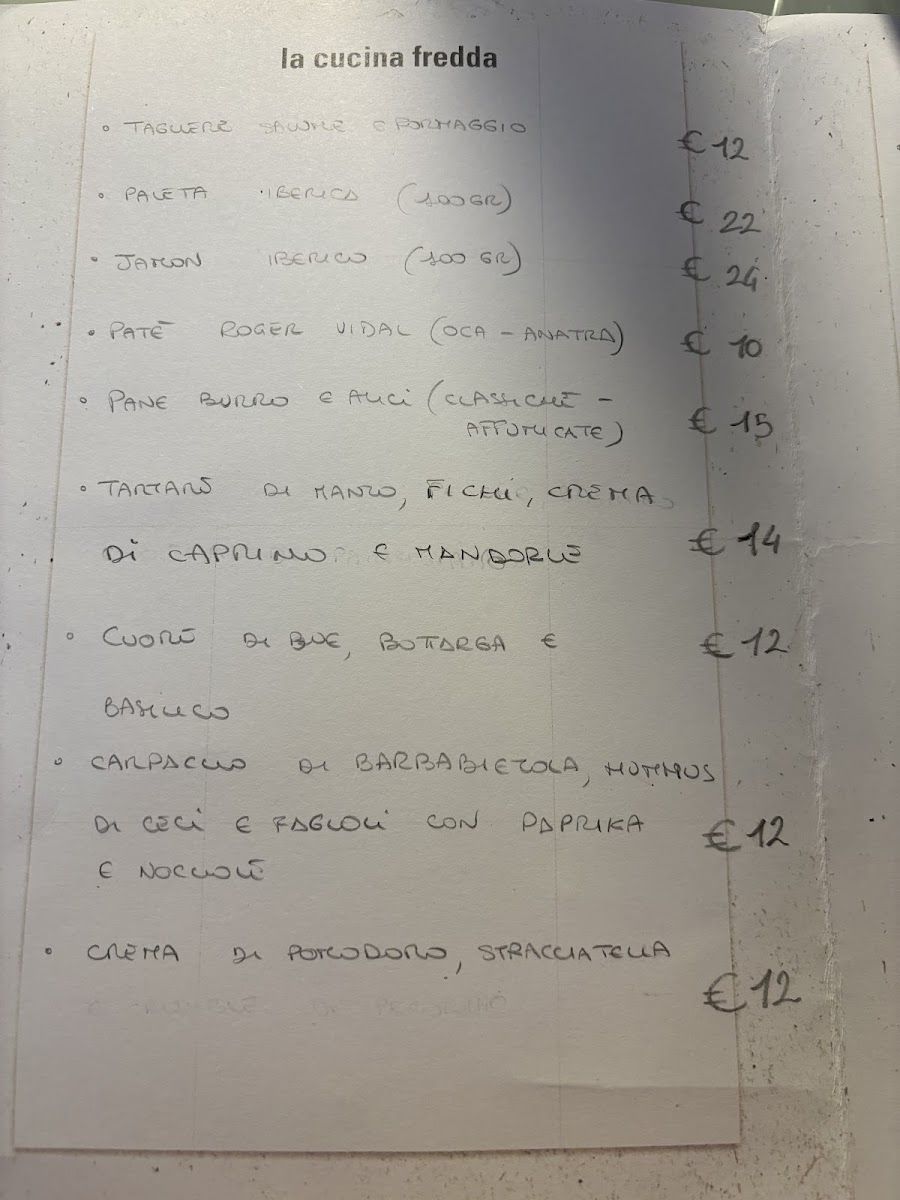 la cucina fredda
• TAGLIERE SALUMI E FORMAGGIO € 12
• PALETA IBERICA (100 GR) € 22
• JAMON IBERICO (100 GR) € 24
• PATÈ ROGER VIDAL (OCA - ANATRA) € 10
• PANE BURRO E ALICI (CLASSICHE -
AFFUMICATE) € 15
• TARTARE DI MANZO, FICHI, CREMA
DI CAPRINO E MANDORLE € 14
• CUORE DI BUE, BOTTARGA E € 12
BASILICO
• CARPACCIO DI BARBABIETOLA, HUMMUS
DI CECI E FAGIOLI CON PAPRIKA € 12
E NOCCIOLE
• CREMA DI POMODORO, STRACCIATELLA
€ 12